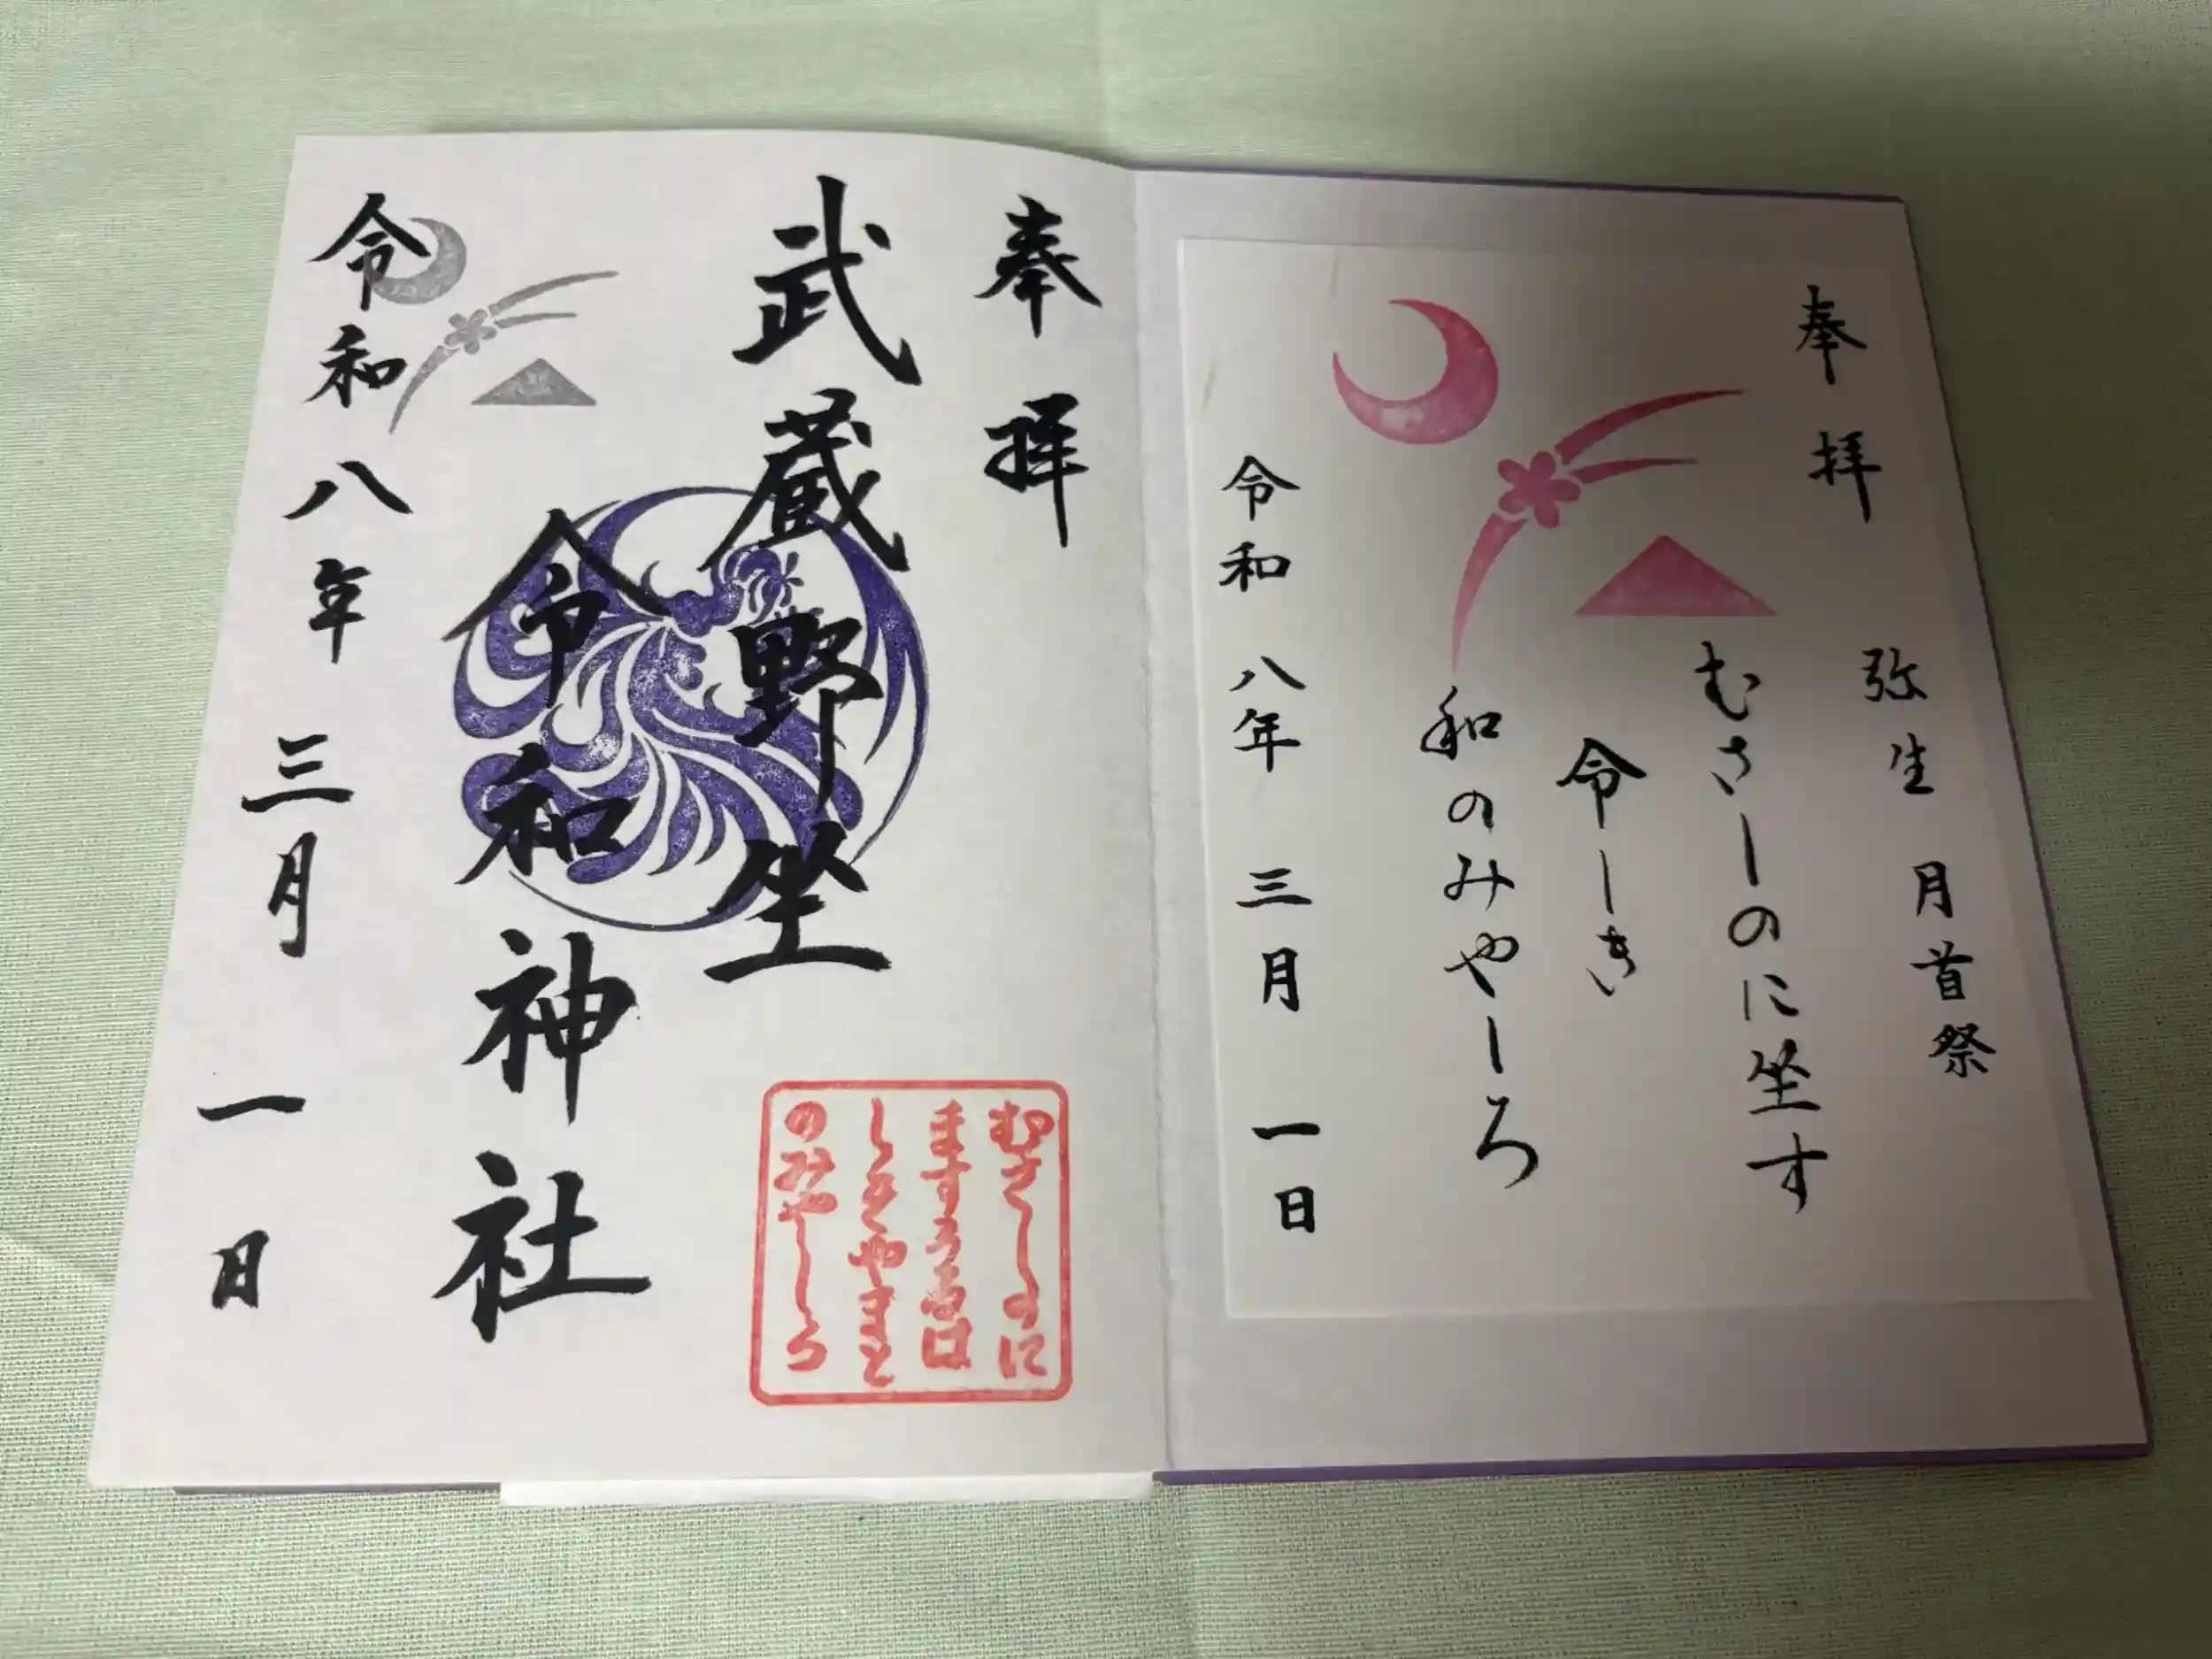 奉拝
弥生 月首祭
むさしのに坐す
令しき
和のみやしろ
令和 八年 三月 一日
奉拝
武蔵野坐
令和神社
令和八年 三月 一日
むさしのに
ますうるは
しきやまと
のみやしろ